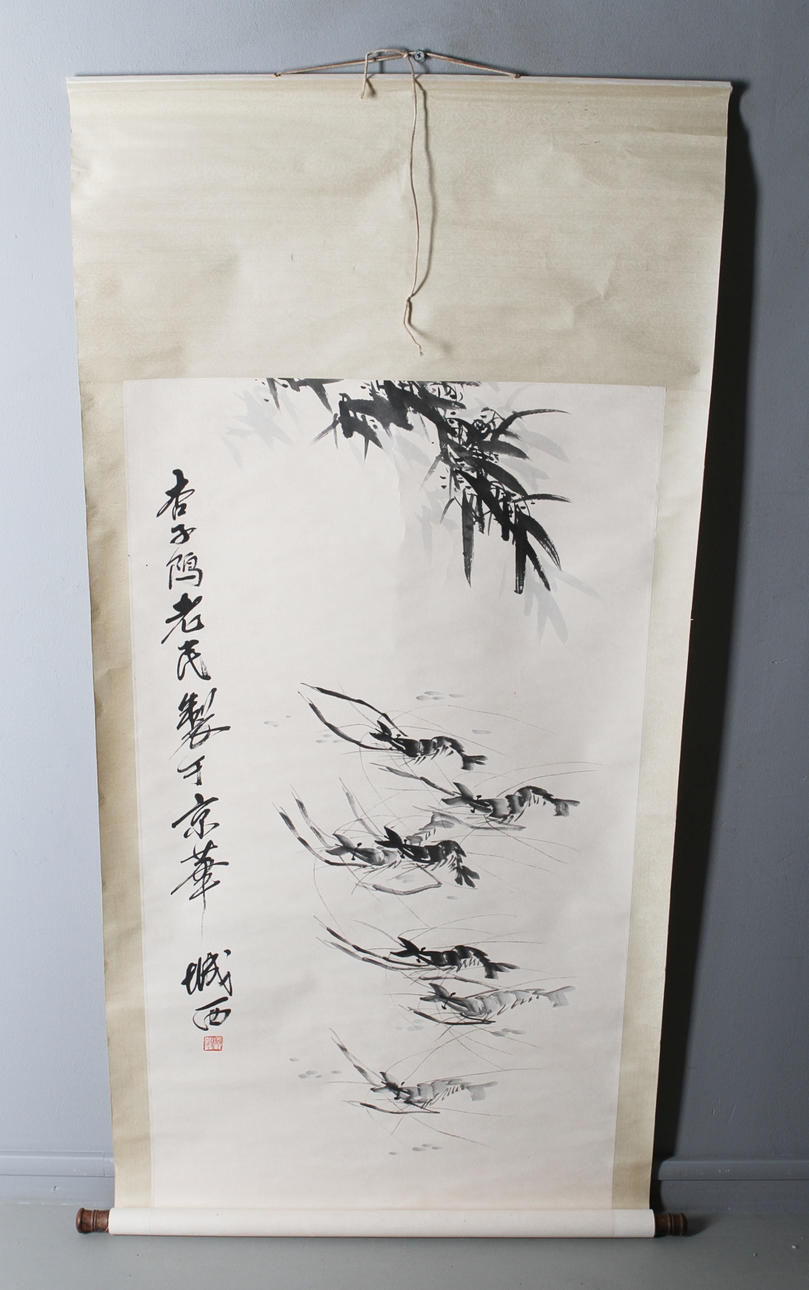 杏子隖老民製于京華城西